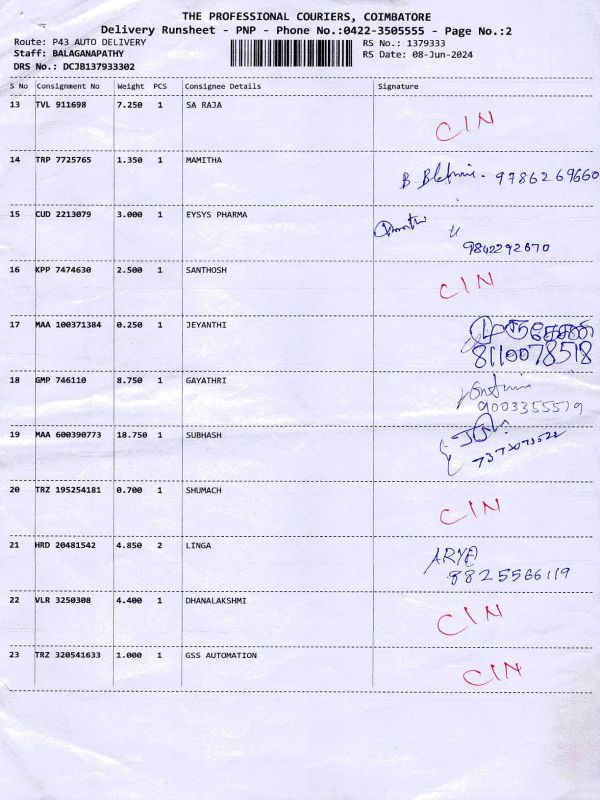 THE PROFESSIONAL COURIERS, COIMBATORE
Delivery Runsheet - PNP - Phone No.:0422-3505555 - Page No.:2
Route: P43 AUTO DELIVERY RS No.: 1379333
Staff: BALAGANAPATHY RS Date: 08-Jun-2024
DRS No.: DCJB137933302
S No Consignment No Weight PCS Consignee Details Signature
13 TVL 911698 7.250 1 SA RAJA CIN
14 TRP 7725765 1.350 1 MAMITHA B 9786269660
15 CUD 2213079 3.000 1 EYSYS PHARMA
9842292670
16 KPP 7474630 2.500 1 SANTHOSH CIN
17 MAA 100371384 0.250 1 JEYANTHI
8110078518
18 GMP 746110 8.750 1 GAYATHRI
9003355519
19 MAA 600390773 18.750 1 SUBHASH
20 TRZ 195254181 0.700 1 SHUMACH CIN
21 HRD 20481542 4.850 2 LINGA ARYA
9825566119
22 VLR 3250308 4.400 1 DHANALAKSHMI CIN
23 TRZ 320541633 1.000 1 GSS AUTOMATION CIN